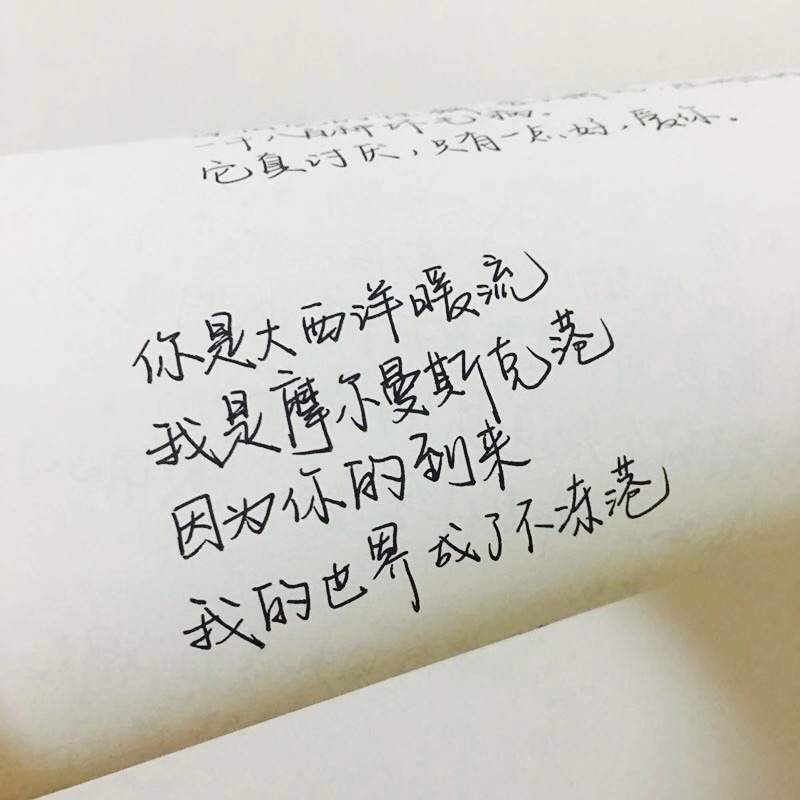 它真讨厌，只有一点好，爱你。
你是大西洋暖流
我是摩尔曼斯克港
因为你的到来
我的世界成了不冻港